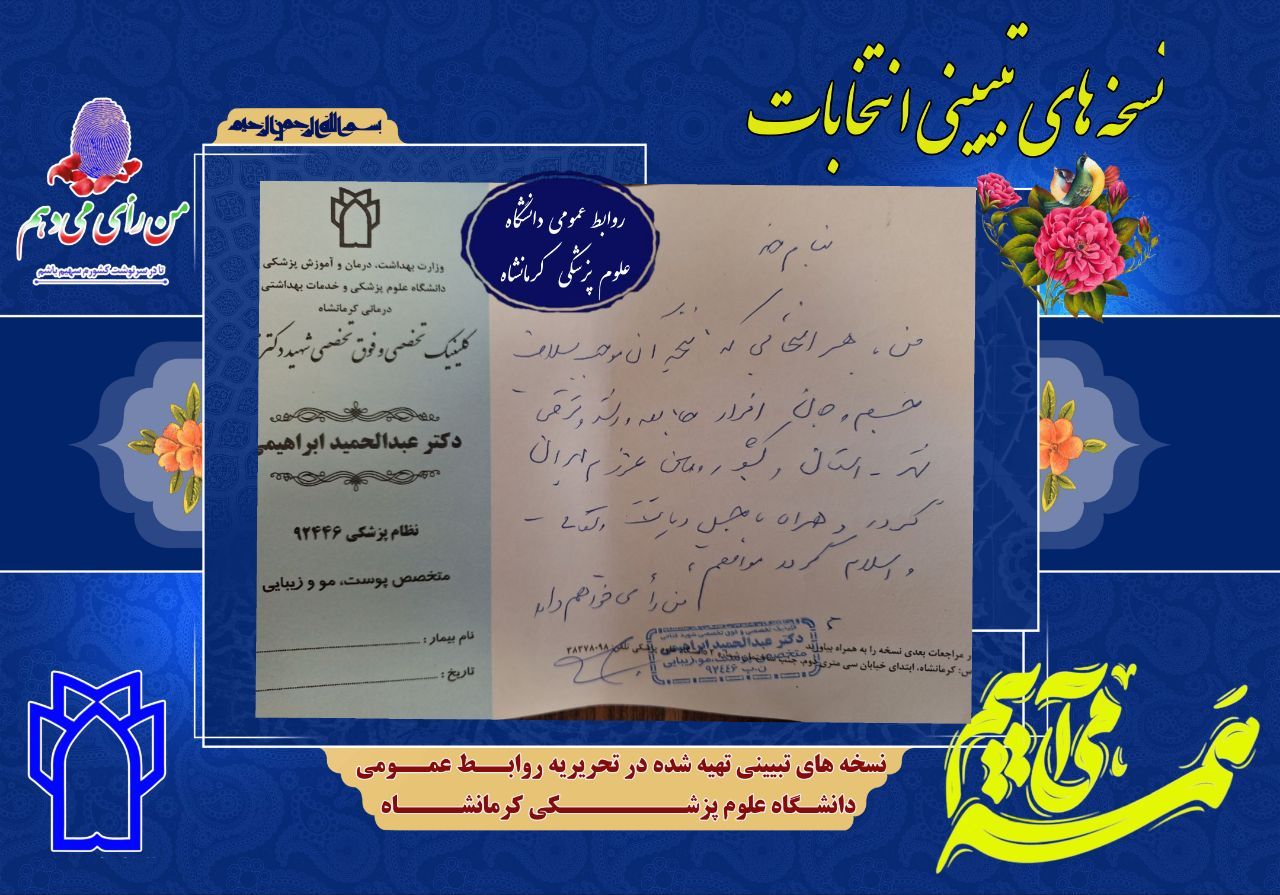 نسخه های تبیینی انتخابات
بسم الله الرحمن الرحیم
من رأی می دهم
تا در سرنوشت کشورم سهیم باشم
روابط عمومی دانشگاه
علوم پزشکی کرمانشاه
وزارت بهداشت، درمان و آموزش پزشکی
دانشگاه علوم پزشکی و خدمات بهداشتی
درمانی کرمانشاه
کلینیک تخصصی و فوق تخصصی شهید دکتر
دکتر عبدالحمید ابراهیمی
نظام پزشکی ۹۲۴۴۶
متخصص پوست، مو و زیبایی
نام بیمار :
تاریخ :
بنام خدا
من، هر انتخابی که نتیجه آن موجب سلامت
جسم و جان افراد جامعه و رشد و ترقی
استان و کشور عزیزم ایران
گردد و همراه با دیانت
و اسلام گردد موافقم،
من رأی خواهم داد
دکتر عبدالحمید ابراهیمی
متخصص پوست، مو، زیبایی
ن.پ ۹۲۴۴۶
ر مراجعات بعدی نسخه را به همراه بیاورید
س: کرمانشاه، ابتدای خیابان سی متری دوم، جنب
تلفن: ۳۸۲۷۸۰۹۸
نسخه های تبیینی تهیه شده در تحریریه روابط عمومی
دانشگاه علوم پزشکی کرمانشاه
همه می آییم